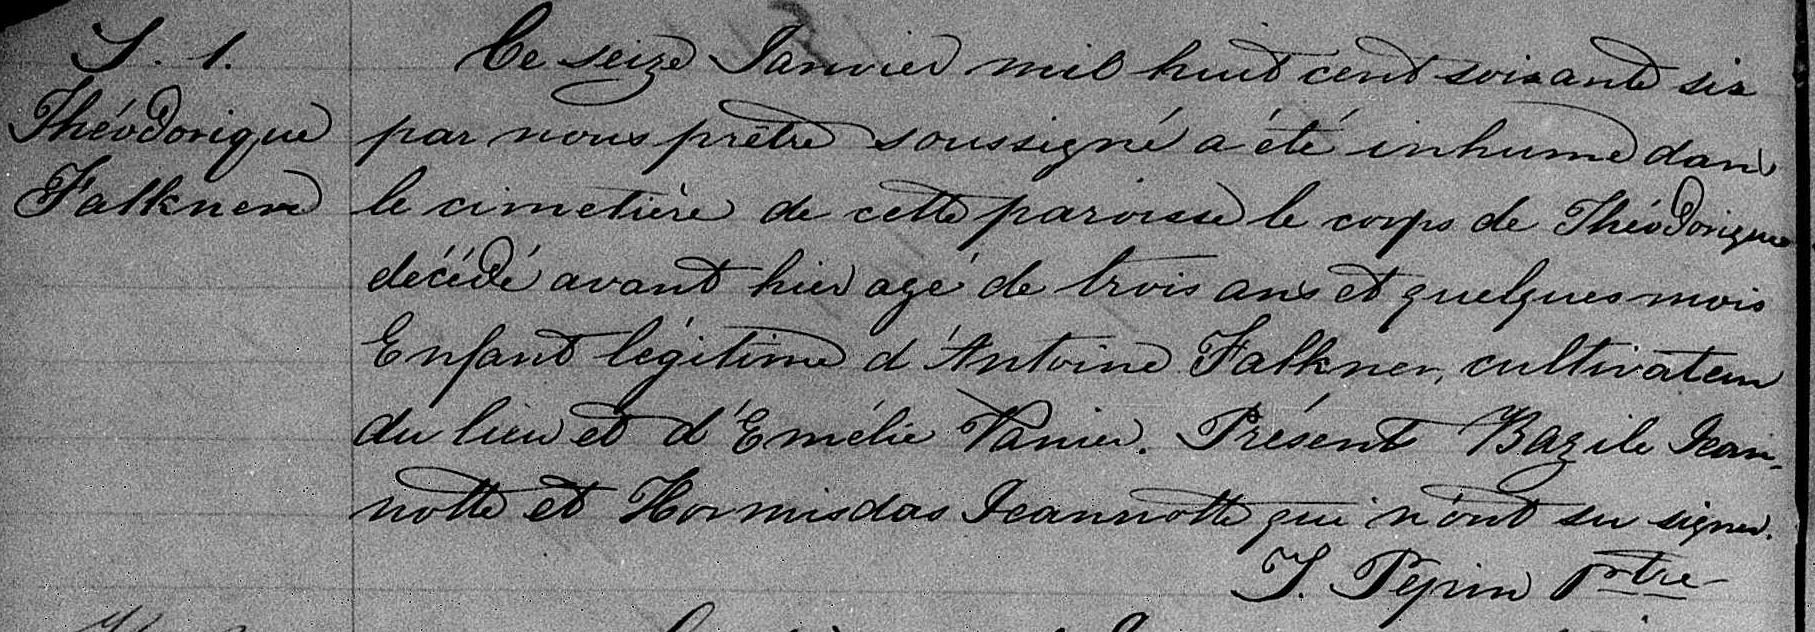 S. 1.
Théodorique
Falkner
Ce seize Janvier mil huit cent soixante six
par nous prêtre soussigné a été inhumé dans
le cimetière de cette paroisse le corps de Théodorique
décédé avant hier agé de trois ans et quelques mois
Enfant légitime d'Antoine Falkner, cultivateur
du lieu et d'Emélie Vanier. Présent Bazile Jean-
notte et Hormisdas Jeannotte qui n'ont su signer.
J. Pepin Ptre